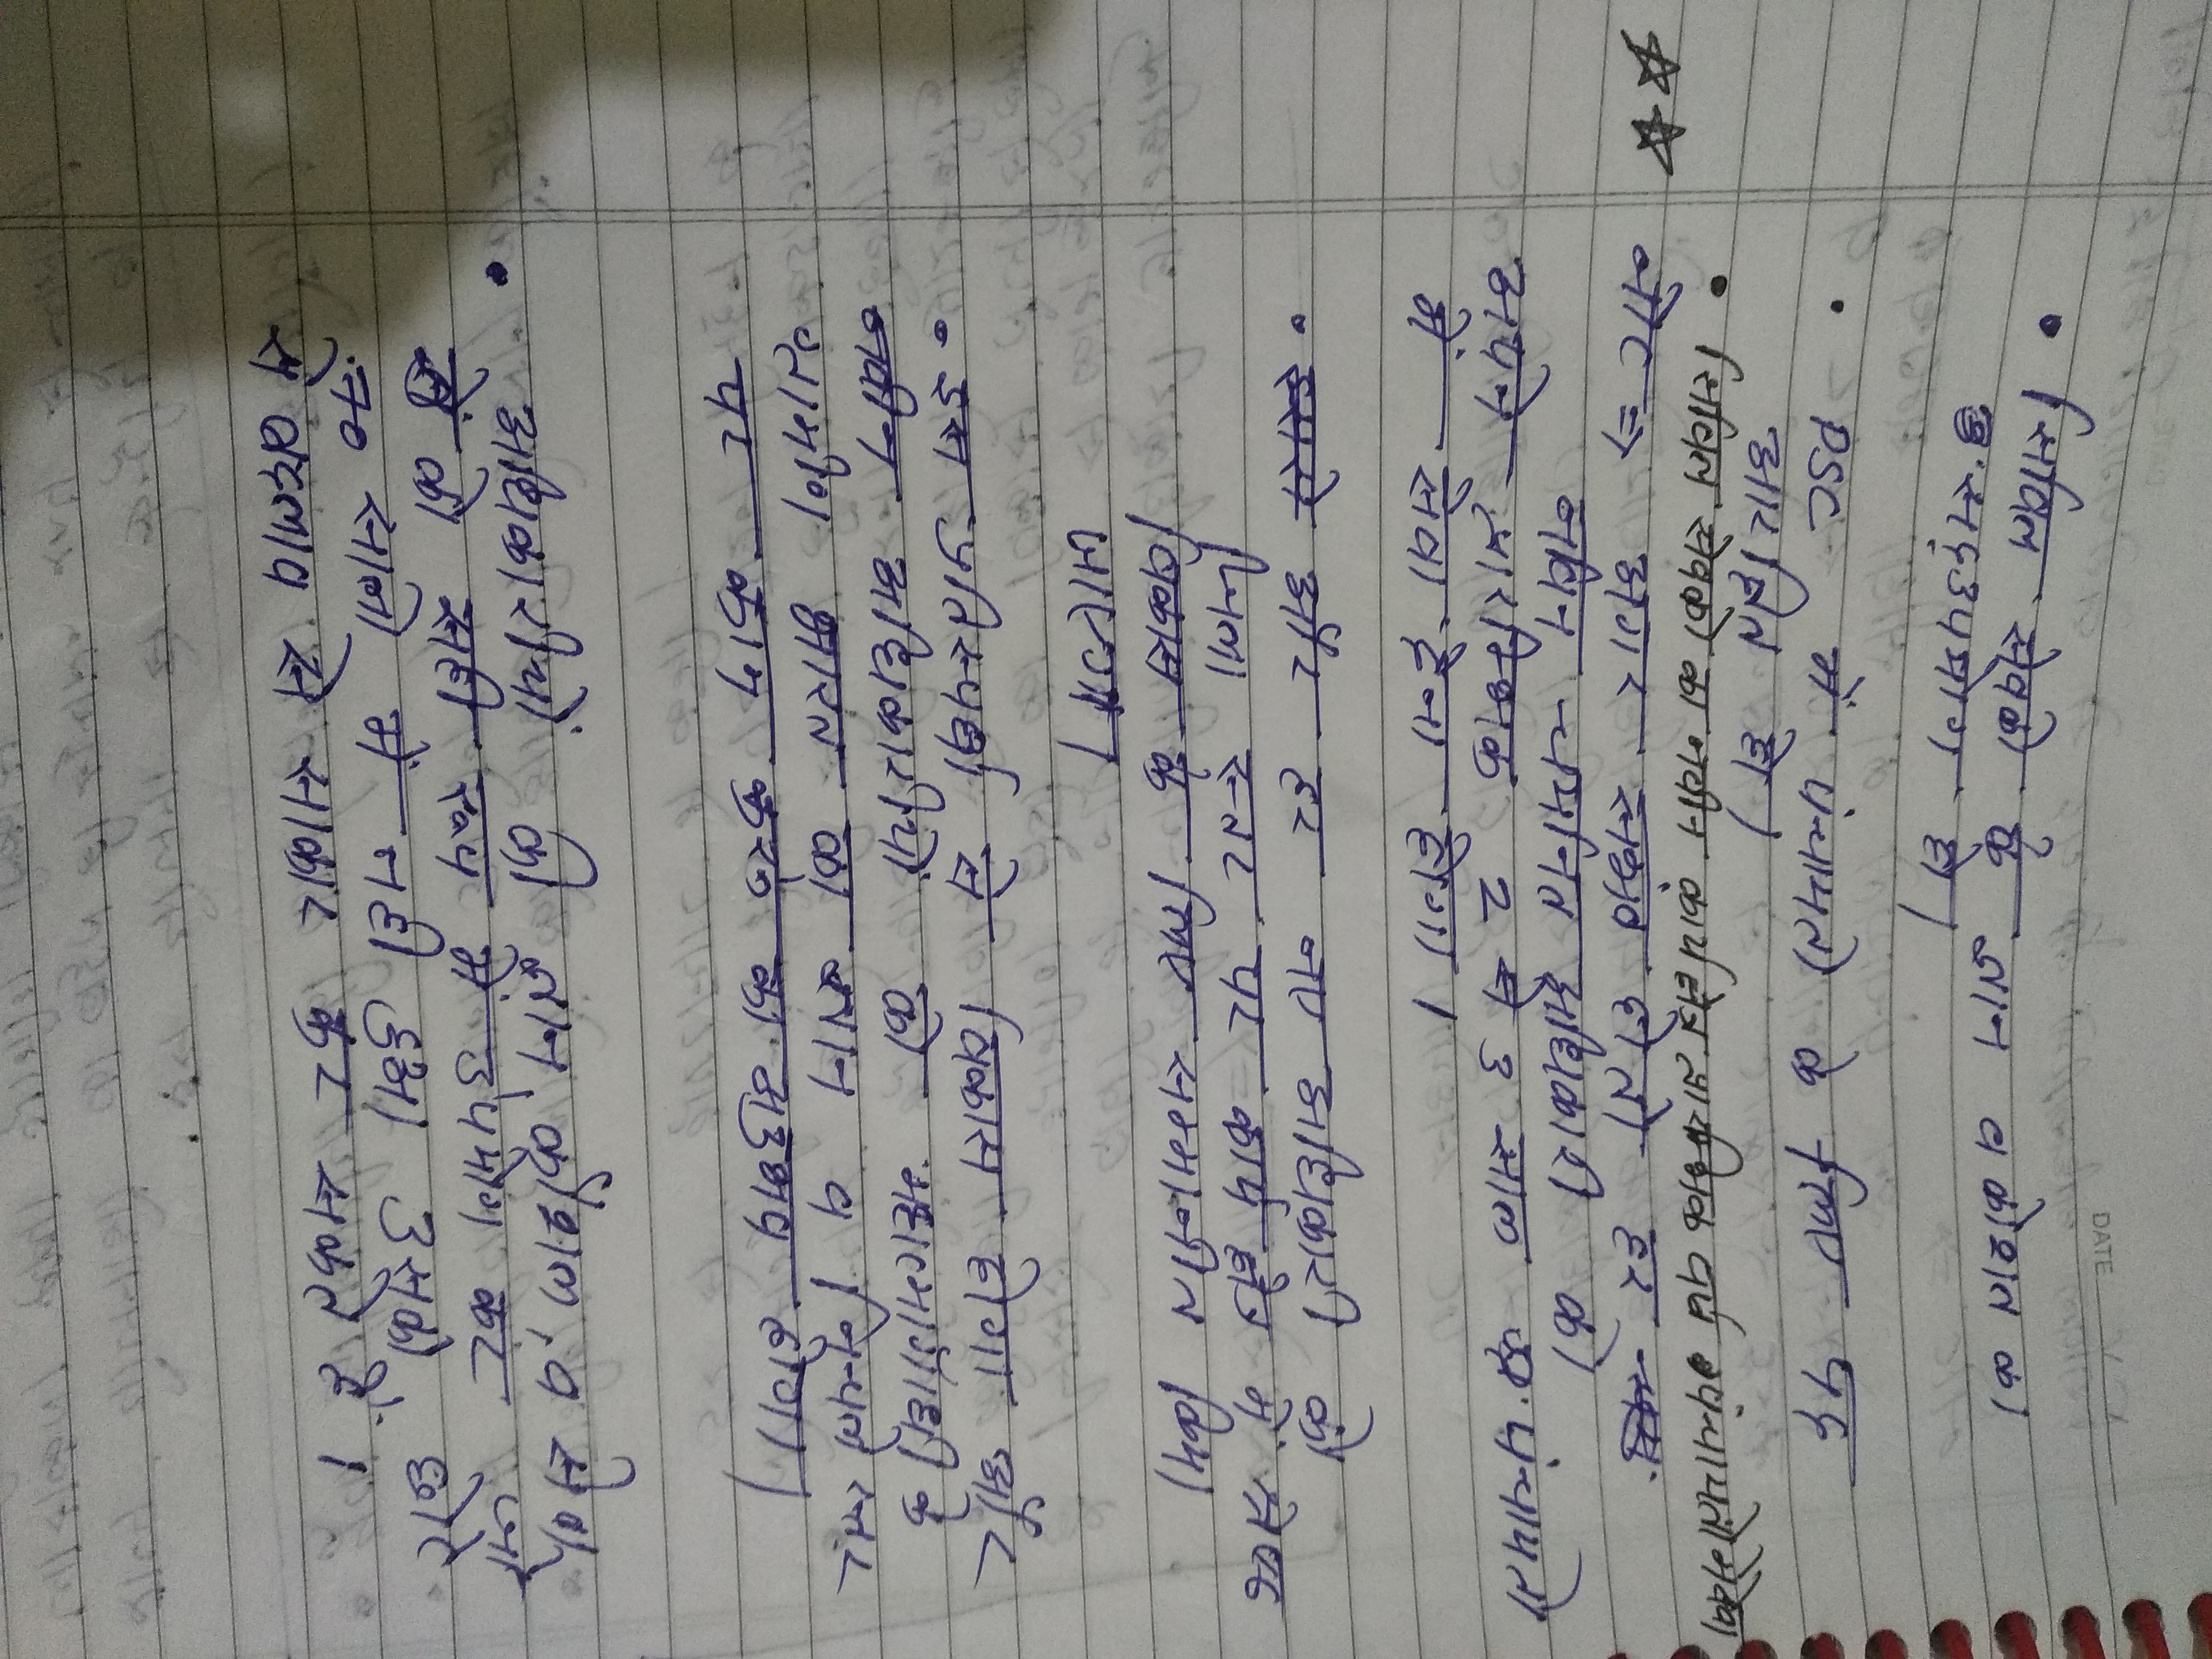 DATE
• सिविल सेवको के ज्ञान व कौशल का
दुःसदउपयोग हो।
• PSC में पंचायतो के लिए पद
आरक्षित हो।
• सिविल सेवको का नवीन कार्य क्षेत्र प्रारम्भिक वर्ष पंचायतो में सेवा
☆☆ नोट ⇒ अगर सम्भव हो तो हर
नविन चयनित अधिकारी को
अपने प्रारम्भिक 2 से 3 साल पंचायतो
में सेवा देना होगा।
• इससे और हर नए अधिकारी को
जिला स्तर पर कार्य क्षेत्र में
विकास के लिए सम्मानीत किया
जाएगा
• इस प्रतिस्पर्धा से विकास होगा और
नवीन अधिकारीयो को महात्मा गाँधी के
ग्रामीण भारत को जानने व निचले स्तर
पर काम करने का अनुभव होगा।
• अधिकारीयों की ज्ञान, कौशल, व सेवा
को सही रूप में उपयोग कर जो
70 सालो में नही हुआ उसको छोटे
से बदलाव से साकार कर सकते हैं।